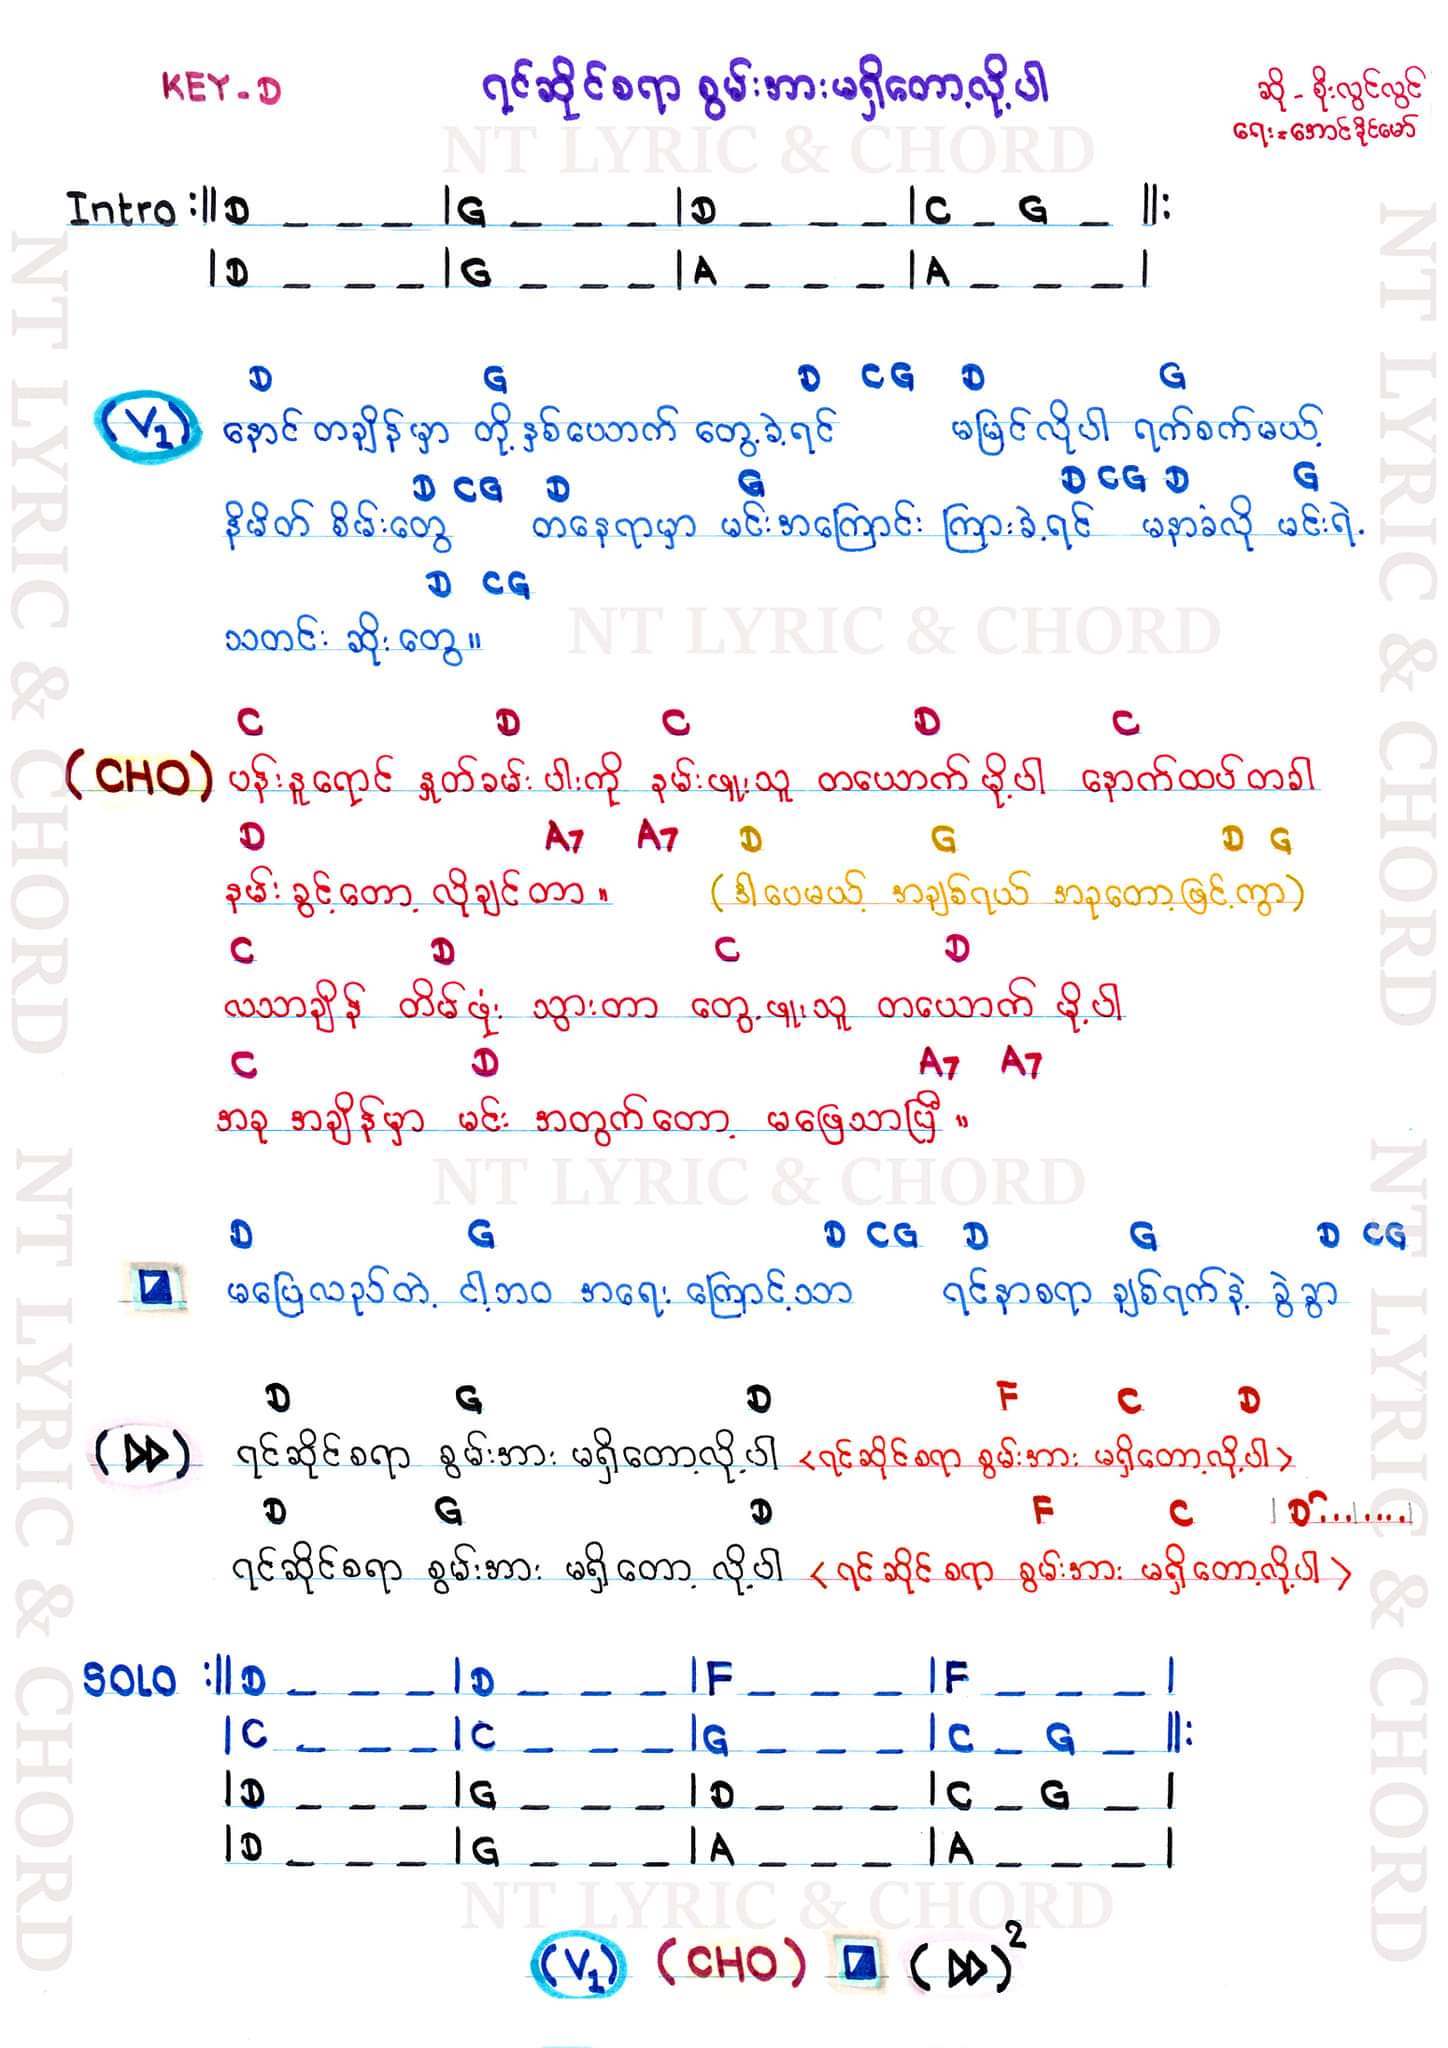 KEY-D
ရင်ဆိုင်စရာ စွမ်းအားမရှိတော့လို့ပါ
ဆို - စိုးလွင်လွင်
ရေး - အောင်ခိုင်မော်
NT LYRIC & CHORD
Intro :||D _ _ _ |G _ _ _ |D _ _ _ |C _ G _ ||:
|D _ _ _ |G _ _ _ |A _ _ _ |A _ _ _ |
D G D C G D G
(V1) နောင်တချိန်မှာ တို့နှစ်ယောက် တွေ့ခဲ့ရင် မမြင်လိုပါ ရက်စက်မယ့်
D C G D G D C G D G
နိမိတ် စိမ်းတွေ တနေရာမှာ မင်းအကြောင်း ကြားခဲ့ရင် မနာခံလို မင်းရဲ့
D C G
သတင်း ဆိုးတွေ။
NT LYRIC & CHORD
C D C D C
(CHO) ပန်းနုရောင် နှုတ်ခမ်းပါးကို နမ်းဖူးသူ တယောက်မို့ပါ နောက်ထပ်တခါ
D A7 A7 D G D G
နမ်းခွင့်တော့ လိုချင်တာ။ (ဒါပေမယ့် အချစ်ရယ် အခုတော့ဖြင့်ကွာ)
C D C D
လသာချိန် တိမ်ဖုံး သွားတာ တွေ့ဖူးသူ တယောက် မို့ပါ
C D A7 A7
အခု အချိန်မှာ မင်း အတွက်တော့ မဖြေသာပြီ။
NT LYRIC & CHORD
D G D C G D G D C G
မပြေလည်တဲ့ ငါ့ဘဝ အရေး ကြောင့်သာ ရင်နာစရာ ချစ်ရက်နဲ့ ခွဲခွာ
D G D F C D
(▷▷) ရင်ဆိုင်စရာ စွမ်းအား မရှိတော့လို့ပါ <ရင်ဆိုင်စရာ စွမ်းအား မရှိတော့လို့ပါ>
D G D F C | D...|....|
ရင်ဆိုင်စရာ စွမ်းအား မရှိတော့ လို့ပါ <ရင်ဆိုင်စရာ စွမ်းအား မရှိတော့လို့ပါ>
SOLO :||D _ _ _ |D _ _ _ |F _ _ _ |F _ _ _ |
|C _ _ _ |C _ _ _ |G _ _ _ |C _ G _ ||:
|D _ _ _ |G _ _ _ |D _ _ _ |C _ G _ |
|D _ _ _ |G _ _ _ |A _ _ _ |A _ _ _ |
NT LYRIC & CHORD
(V1) (CHO) (▷▷)2
NT LYRIC & CHORD
NT LYRIC & CHORD
NT LYRIC & CHORD
NT LYRIC & CHORD